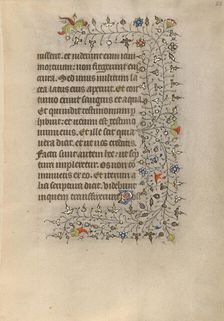 uissent. et uiderunt eum iam
mortuum: non fregerunt eius
crura. Sed unus militum lan
cea latus eius aperuit. Et con
tinuo exiuit sanguis et aqua
Et qui uidit testimonium
perhibuit. et uerum est testimo
nium eius. Et ille scit quia
uera dicit. et ut uos credatis.
Facta sunt autem hec. ut scrip
tura impleretur. Os non co
minuetis ex eo. Et iterum a
lia scriptura dicit. Videbunt
in quem transfixerunt